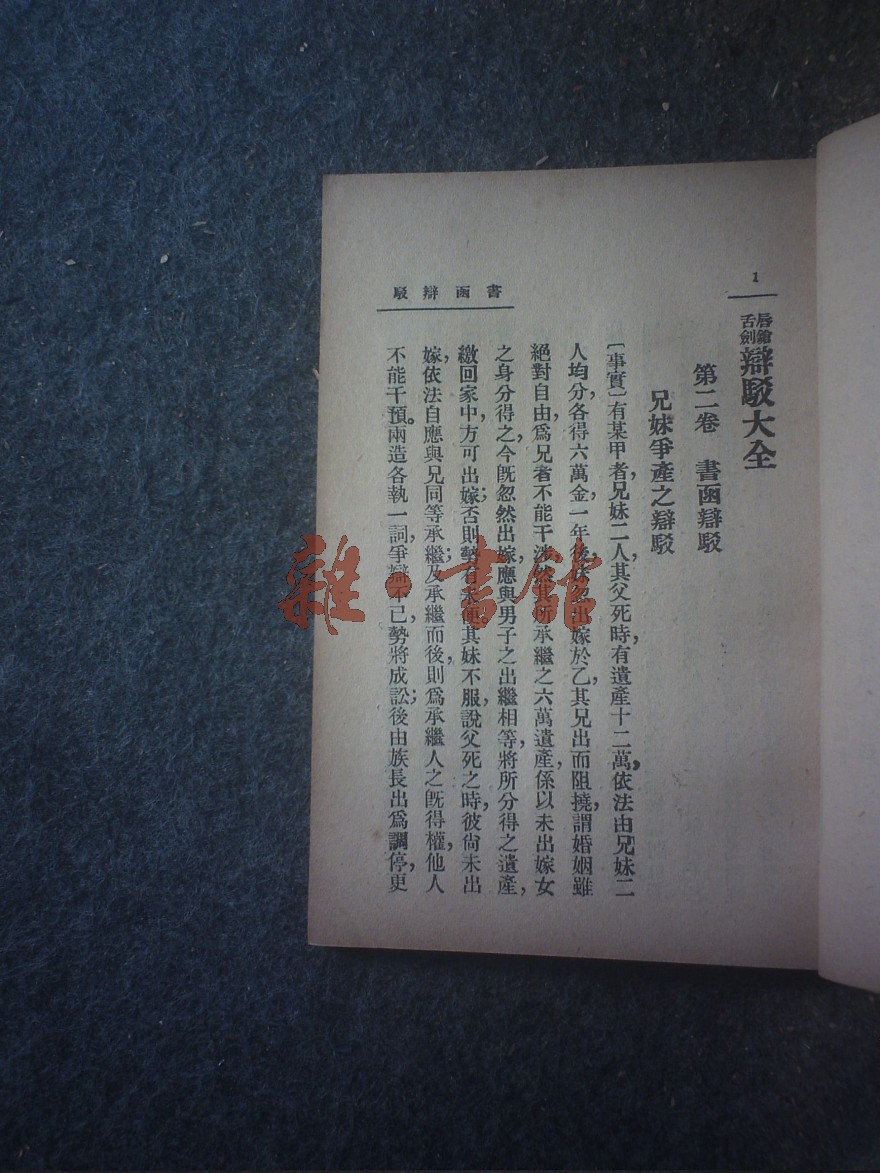 1
唇鎗舌劍辯駁大全
第二卷　書函辯駁
兄妹爭產之辯駁
〔事實〕有某甲者，兄妹二人，其父死時，有遺產十二萬，依法由兄妹二
人均分，各得六萬金，一年後，妹忽出嫁於乙，其兄出而阻撓，謂婚姻雖
絕對自由，爲兄者不能干涉，然其所承繼之六萬遺產，係以未出嫁女
之身分得之，今旣忽然出嫁，應與男子之出繼相等，將所分得之遺產，
繳回家中，方可出嫁；否則勢有未便。其妹不服，說父死之時，彼尙未出
嫁，依法自應與兄同等承繼；及承繼而後，則爲承繼人之旣得權，他人
不能干預。兩造各執一詞，爭辯不已，勢將成訟；後由族長出爲調停，更
書函辯駁
雜·書館